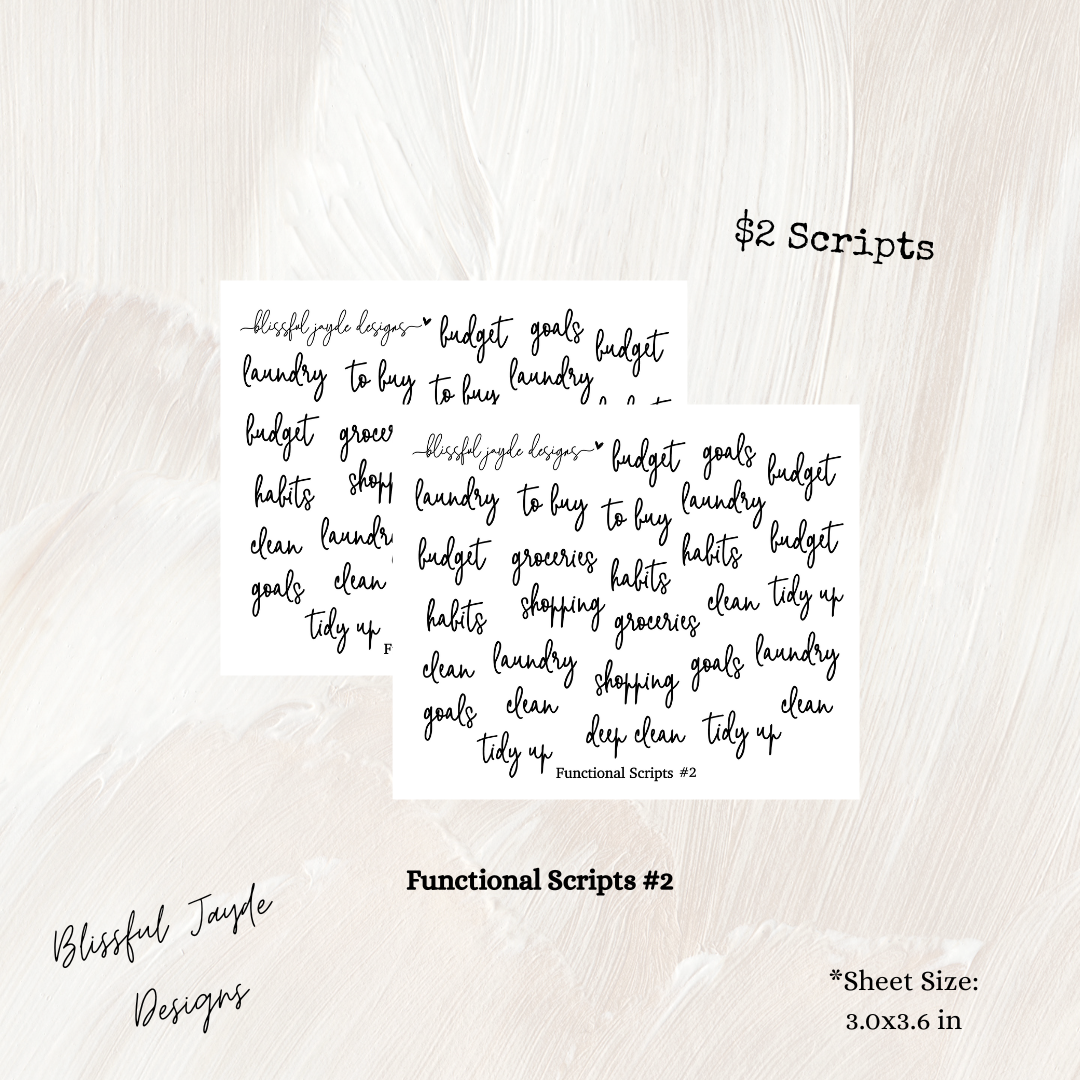 $2 Scripts
blissful jayde designs
budget goals budget
laundry to buy to buy laundry
budget
habits
clean
goals clean
tidy up
blissful jayde designs
budget goals budget
laundry to buy to buy laundry
budget groceries habits habits budget
habits shopping groceries clean tidy up
clean laundry shopping goals laundry
goals clean deep clean tidy up clean
tidy up
Functional Scripts #2
Functional Scripts #2
Blissful Jayde
Designs
*Sheet Size:
3.0x3.6 in